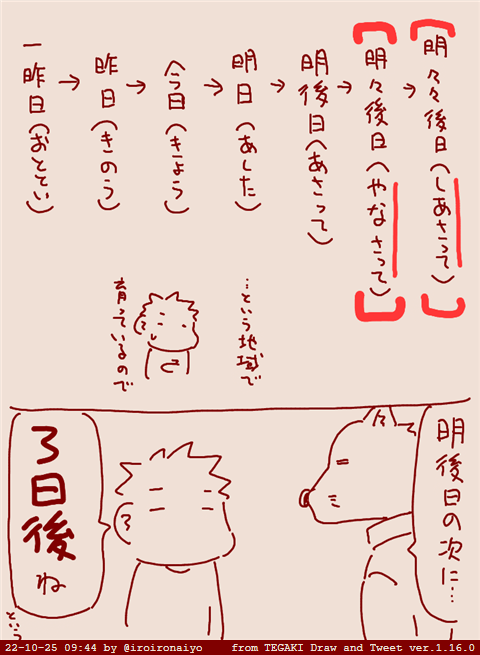 一昨日(おととい)
→
昨日(きのう)
→
今日(きょう)
→
明日(あした)
→
明後日(あさって)
→
明々後日(やなさって)
→
明々々後日(しあさって)
…という地域で
育っているので
明後日の次に…
3日後ね
という
22-10-25 09:44 by @iroironaiyo
from TEGAKI Draw and Tweet ver.1.16.0